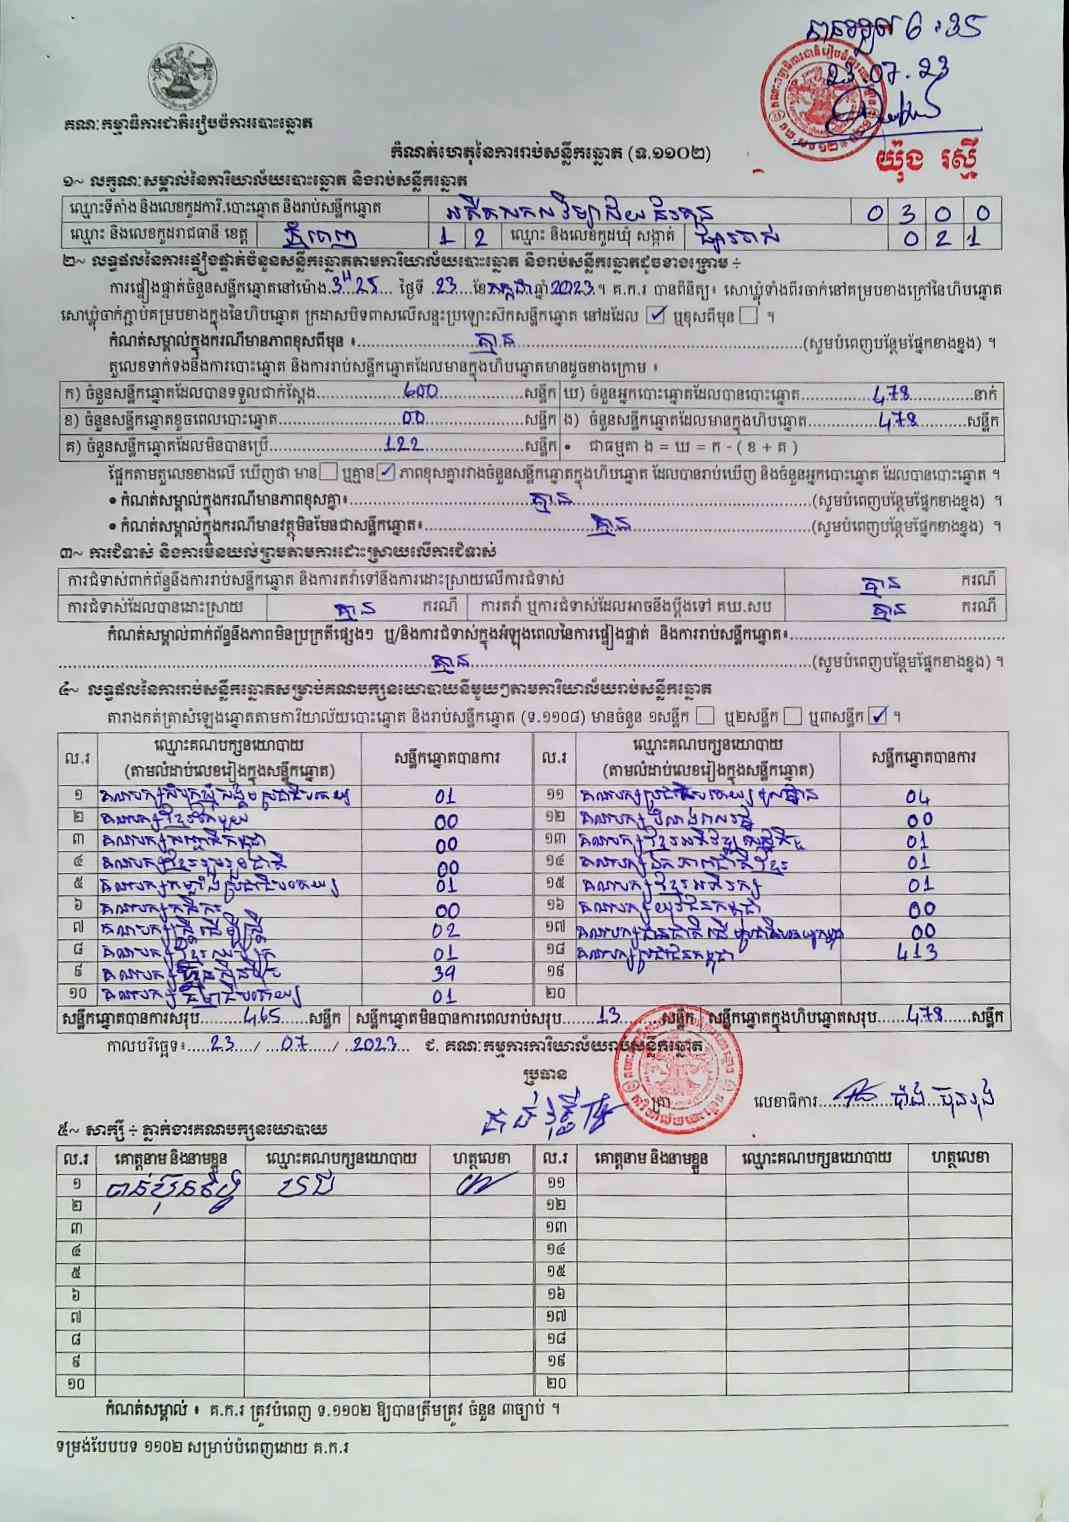 បានទទួល 6:35
23.07.23
យ៉ុង រស្មី
គណៈកម្មាធិការជាតិរៀបចំការបោះឆ្នោត
កំណត់ហេតុនៃការរាប់សន្លឹកឆ្នោត (ទ.១១០២)
១~ លក្ខណៈសម្គាល់នៃការិយាល័យបោះឆ្នោត និងរាប់សន្លឹកឆ្នោត
ឈ្មោះទីតាំង និងលេខកូដការិ.បោះឆ្នោត និងរាប់សន្លឹកឆ្នោត 0 3 0 0
ឈ្មោះ និងលេខកូដរាជធានី ខេត្ត ភ្នំពេញ 1 2 ឈ្មោះ និងលេខកូដឃុំ សង្កាត់ 0 2 1
២~ លទ្ធផលនៃការផ្ទៀងផ្ទាត់ចំនួនសន្លឹកឆ្នោតតាមការិយាល័យបោះឆ្នោត និងរាប់សន្លឹកឆ្នោតដូចខាងក្រោម ÷
ការផ្ទៀងផ្ទាត់ចំនួនសន្លឹកឆ្នោតនៅម៉ោង.3:25... ថ្ងៃទី .23...ខែកក្កដាឆ្នាំ2023.។ គ.ក.រ បានពិនិត្យ៖ សោឃ្លុំទាំងពីរចាក់នៅគម្របខាងក្រៅនៃហិបឆ្នោត
សោឃ្លុំចាក់ភ្ជាប់គម្របខាងក្នុងនៃហិបឆ្នោត ក្រដាសបិទពាសលើសន្ទះប្រឡោះស៊ីកសន្លឹកឆ្នោត នៅដដែល ☑ ឬខុសពីមុន ☐ ។
កំណត់សម្គាល់ក្នុងករណីមានភាពខុសពីមុន ៖ គ្មាន (សូមបំពេញបន្ថែមផ្នែកខាងខ្នង) ។
តួលេខទាក់ទងនឹងការបោះឆ្នោត និងការរាប់សន្លឹកឆ្នោតដែលមានក្នុងហិបឆ្នោតមានដូចខាងក្រោម ៖
ក) ចំនួនសន្លឹកឆ្នោតដែលបានទទួលជាក់ស្តែង 600 សន្លឹក ឃ) ចំនួនអ្នកបោះឆ្នោតដែលបានបោះឆ្នោត 478 នាក់
ខ) ចំនួនសន្លឹកឆ្នោតខូចពេលបោះឆ្នោត 00 សន្លឹក ង) ចំនួនសន្លឹកឆ្នោតដែលមានក្នុងហិបឆ្នោត 478 សន្លឹក
គ) ចំនួនសន្លឹកឆ្នោតដែលមិនបានប្រើ 122 សន្លឹក • ជាធម្មតា ង = ឃ = ក - ( ខ + គ )
ផ្អែកតាមតួលេខខាងលើ ឃើញថា មាន ☐ ឬគ្មាន ☑ ភាពខុសគ្នារវាងចំនួនសន្លឹកឆ្នោតក្នុងហិបឆ្នោត ដែលបានរាប់ឃើញ និងចំនួនអ្នកបោះឆ្នោត ដែលបានបោះឆ្នោត ។
• កំណត់សម្គាល់ក្នុងករណីមានភាពខុសគ្នា៖ គ្មាន (សូមបំពេញបន្ថែមផ្នែកខាងខ្នង) ។
• កំណត់សម្គាល់ក្នុងករណីមានវត្ថុមិនមែនជាសន្លឹកឆ្នោត៖ គ្មាន (សូមបំពេញបន្ថែមផ្នែកខាងខ្នង) ។
៣~ ការជំទាស់ និងការមិនយល់ព្រមតាមការដោះស្រាយលើការជំទាស់
ការជំទាស់ពាក់ព័ន្ធនឹងការរាប់សន្លឹកឆ្នោត និងការតវ៉ាទៅនឹងការដោះស្រាយលើការជំទាស់ គ្មាន ករណី
ការជំទាស់ដែលបានដោះស្រាយ គ្មាន ករណី ការតវ៉ា ឬការជំទាស់ដែលអាចនឹងប្តឹងទៅ គឃ.សប គ្មាន ករណី
កំណត់សម្គាល់ពាក់ព័ន្ធនឹងភាពមិនប្រក្រតីផ្សេងៗ ឬ/និងការជំទាស់ក្នុងអំឡុងពេលនៃការផ្ទៀងផ្ទាត់ និងការរាប់សន្លឹកឆ្នោត៖
គ្មាន (សូមបំពេញបន្ថែមផ្នែកខាងខ្នង) ។
៤~ លទ្ធផលនៃការរាប់សន្លឹកឆ្នោតសម្រាប់គណបក្សនយោបាយនីមួយៗតាមការិយាល័យរាប់សន្លឹកឆ្នោត
តារាងកត់ត្រាសំឡេងឆ្នោតតាមការិយាល័យបោះឆ្នោត និងរាប់សន្លឹកឆ្នោត (ទ.១១០៨) មានចំនួន ១សន្លឹក ☐ ឬ២សន្លឹក ☐ ឬ៣សន្លឹក ☑ ។
ល.រ ឈ្មោះគណបក្សនយោបាយ (តាមលំដាប់លេខរៀងក្នុងសន្លឹកឆ្នោត) សន្លឹកឆ្នោតបានការ ល.រ ឈ្មោះគណបក្សនយោបាយ (តាមលំដាប់លេខរៀងក្នុងសន្លឹកឆ្នោត) សន្លឹកឆ្នោតបានការ
១ គណបក្សសំបុកឃ្មុំសង្គមប្រជាធិបតេយ្យ 01 ១១ គណបក្សប្រជាធិបតេយ្យមូលដ្ឋាន 04
២ គណបក្សខ្មែររួបរួម 00 ១២ គណបក្ស 00
៣ គណបក្សសញ្ជាតិកម្ពុជា 00 ១៣ គណបក្សខ្មែរអភិវឌ្ឍន៍សេដ្ឋកិច្ច 01
៤ គណបក្សខ្មែររួបរួមជាតិ 00 ១៤ គណបក្សឯកភាពជាតិខ្មែរ 01
៥ គណបក្សកម្លាំងប្រជាធិបតេយ្យ 01 ១៥ គណបក្សខ្មែរអភិរក្ស 01
៦ គណបក្សកសិករ 00 ១៦ គណបក្សយុវជនកម្ពុជា 00
៧ គណបក្សស្ត្រីដើម្បីស្ត្រី 02 ១៧ គណបក្ស 00
៨ គណបក្ស 01 ១៨ គណបក្សប្រជាជនកម្ពុជា 413
៩ គណបក្សហ៊្វុនស៊ិនប៉ិច 39 ១៩
១០ គណបក្សធម្មាធិបតេយ្យ 01 ២០
សន្លឹកឆ្នោតបានការសរុប 465 សន្លឹក សន្លឹកឆ្នោតមិនបានការពេលរាប់សរុប 13 សន្លឹក សន្លឹកឆ្នោតក្នុងហិបឆ្នោតសរុប 478 សន្លឹក
កាលបរិច្ឆេទ៖ 23 / 07 / 2023 ជ. គណៈកម្មការការិយាល័យរាប់សន្លឹកឆ្នោត
ប្រធាន
ត្រា លេខាធិការ
៥~ សាក្សី ÷ ភ្នាក់ងារគណបក្សនយោបាយ
ល.រ គោត្តនាម និងនាមខ្លួន ឈ្មោះគណបក្សនយោបាយ ហត្ថលេខា ល.រ គោត្តនាម និងនាមខ្លួន ឈ្មោះគណបក្សនយោបាយ ហត្ថលេខា
១ ១១
២ ១២
៣ ១៣
៤ ១៤
៥ ១៥
៦ ១៦
៧ ១៧
៨ ១៨
៩ ១៩
១០ ២០
កំណត់សម្គាល់ ៖ គ.ក.រ ត្រូវបំពេញ ទ.១១០២ ឱ្យបានត្រឹមត្រូវ ចំនួន ៣ច្បាប់ ។
ទម្រង់បែបបទ ១១០២ សម្រាប់បំពេញដោយ គ.ក.រ